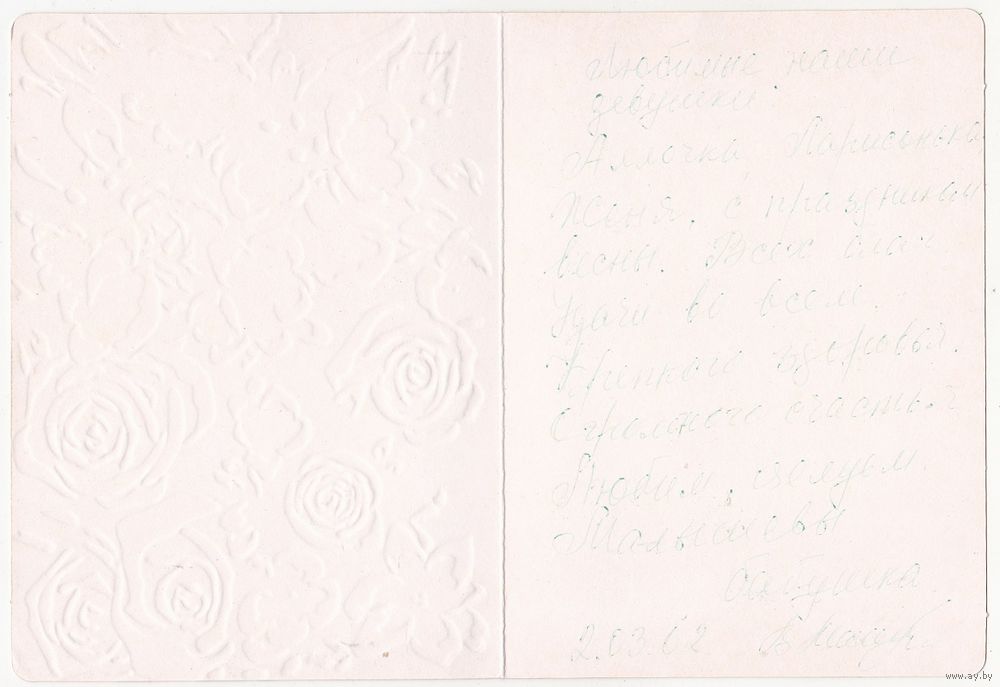 Любимые наши
девушки:
Аллочка, Ларисонька
Женя, с праздником
весны. Всех благ
Удачи во всем.
Крепкого здоровья.
Огромного счастья
Любим, целуем.
Малышевы
бабушка
2.03.62
www.ay.by